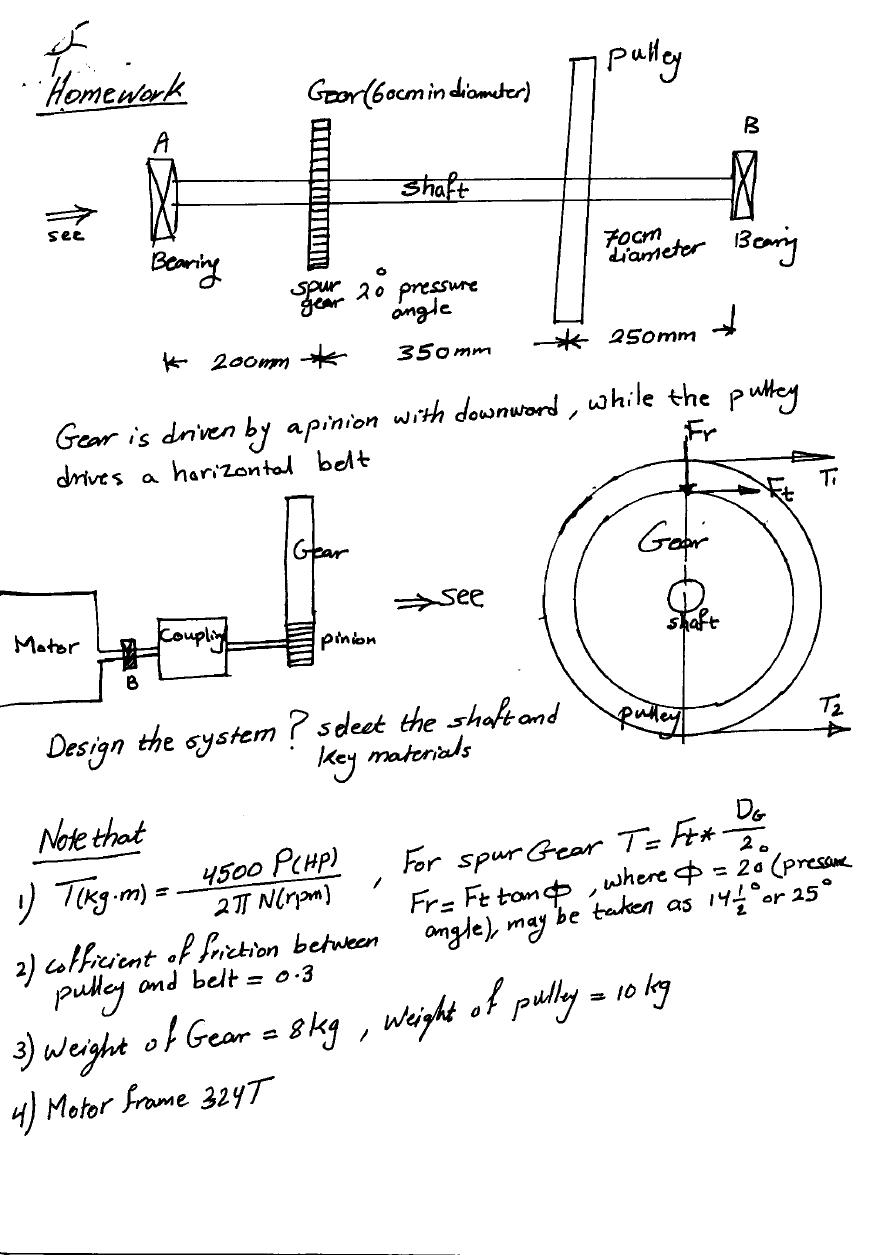 Homework
Gear (60cm in diameter)
pulley
A
B
shaft
see
Bearing
spur gear 20° pressure angle
70cm diameter
Bearing
200mm
350mm
250mm
Gear is driven by a pinion with downward, while the pulley
drives a horizontal belt
Fr
T1
Ft
Gear
Gear
see
shaft
Motor
Coupling
pinion
B
pulley
T2
Design the system? select the shaft and
key materials
Note that
1) T(kg.m) = 4500 P(HP) / 2π N(rpm) , For spur Gear T = Ft * DG / 2
Fr = Ft tan Φ , where Φ = 20° (pressure
angle), may be taken as 14½° or 25°
2) cofficient of friction between
pulley and belt = 0.3
3) Weight of Gear = 8kg , Weight of pulley = 10 kg
4) Motor frame 324T